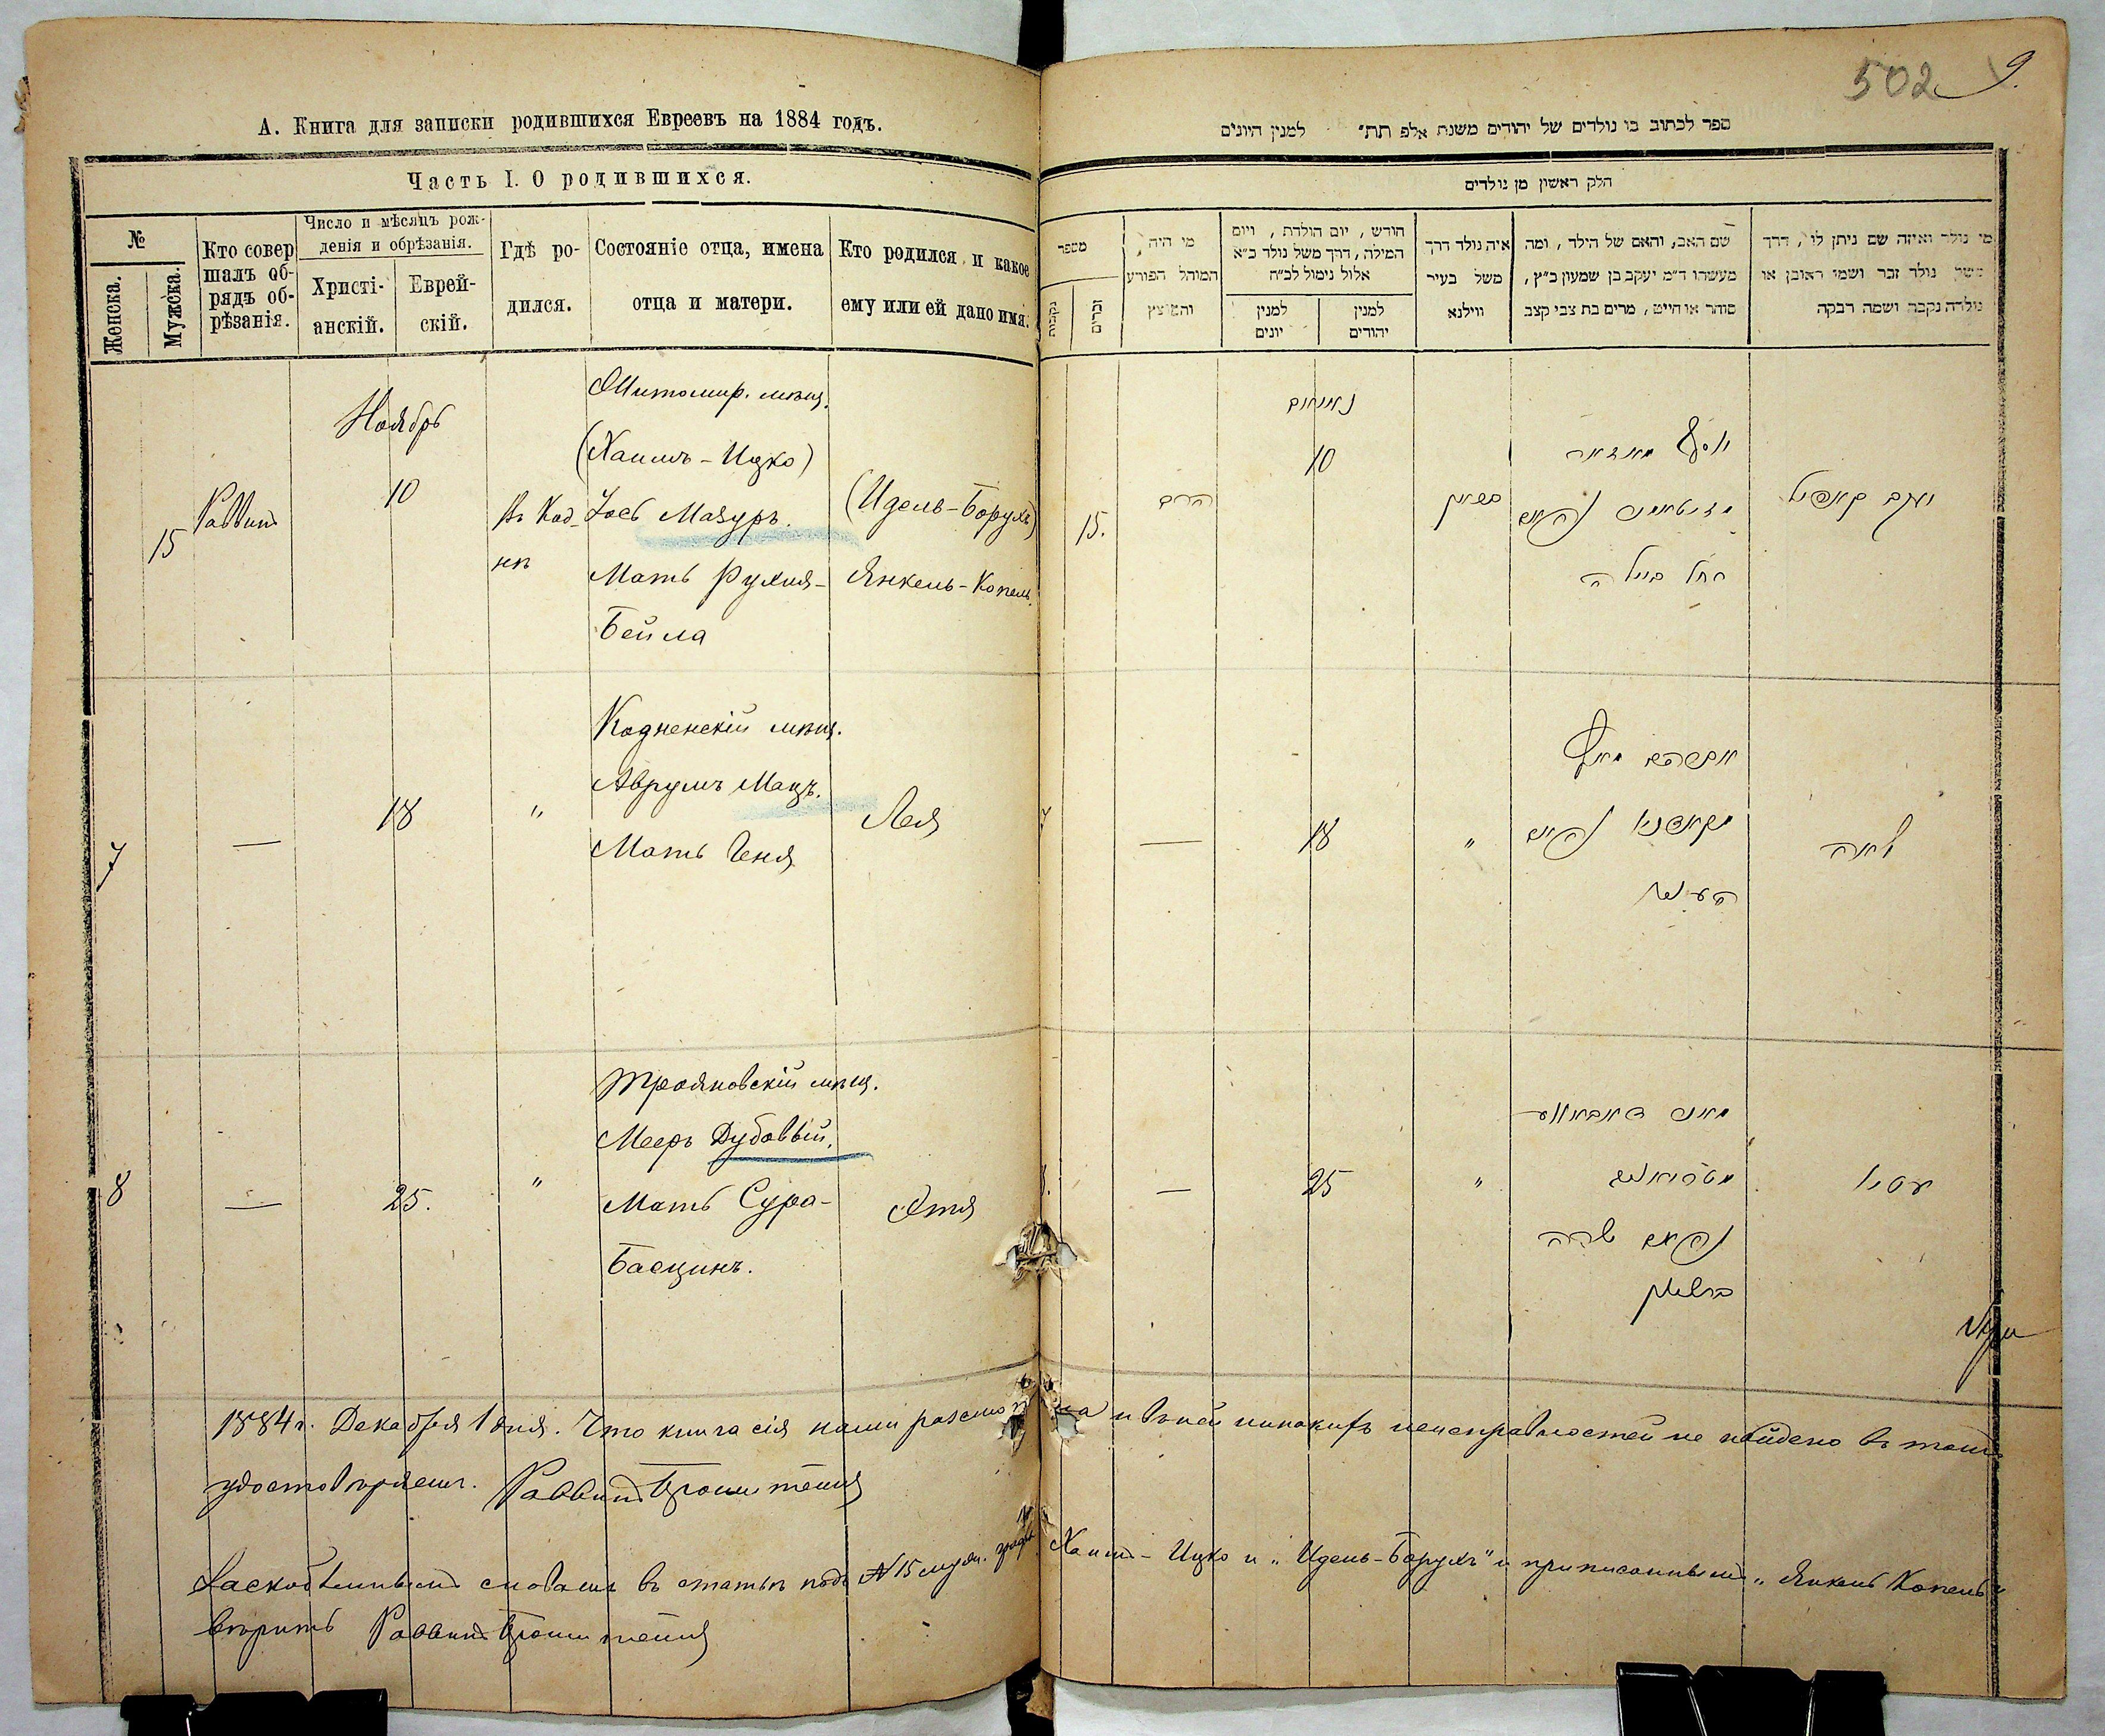 А. Книга для записки родившихся Евреевъ на 1884 годъ.
Часть I. О родившихся.
№
Женска.
Мужска.
Кто совер
шалъ об-
рядъ об-
рѣзанія.
Число и мѣсяцъ рож-
денія и обрѣзанія.
Христі-
анскій.
Еврей-
скій.
Гдѣ ро-
дился.
Состояніе отца, имена
отца и матери.
Кто родился и какое
ему или ей дано имя.
15
Раввинъ
Ноябрь
10
Въ Код-
нѣ
Житомир. мѣщ.
(Хаимъ-Ицко)
Іось Мазуръ.
Мать Рухля-
Бейла
(Идель-Борухъ)
Янкель-Копель.
7
—
18
"
Кодненскій мѣщ.
Аврумъ Мацъ.
Мать Геня
Лея
8
—
25.
"
Трояновскій мѣщ.
Мееръ Дубовый.
Мать Сура-
Басцинъ.
Этя
502
9.
ספר לכתוב בו נולדים של יהודים משנת אלפ תת״ למנין היונים
חלק ראשון מן נולדים
מספר
נקבות
זכרים
מי היה
המוהל הפורע
והמוצץ
חודש, יום הולדת, ויום
המילה, דרך משל נולד כ״א
אלול נימול לכ״ח
למנין
יונים
למנין
יהודים
איה נולד דרך
משל בעיר
ווילנא
שם האב, והאם של הילד, ומה
מעשהו ד״מ יעקב בן שמעון כ״ץ,
סוחר או חייט, מרים בת צבי קצב
מי נולד ואיזה שם ניתן לו, דרך
משל נולד זכר ושמו ראובן או
נולדה נקבה ושמה רבקה
15.
הרב
10
יוסף מאזור
רחל ביילה
יעקב קאפיל
7
—
18
"
אברהם מאץ
לאה
8.
—
25
"
שרה
עטיל
1884 г. Декабря 1 дня. Что книга сія нами разсмотрѣна и въ ней никакихъ неисправностей не найдено въ томъ
удостовѣряемъ. Раввинъ
Раскобленнымъ словамъ въ статьѣ подъ № 15 муж. графы Хаимъ-Ицко и "Идель-Борухъ" и приписаннымъ "Янкель Копель"
вѣрить Раввинъ